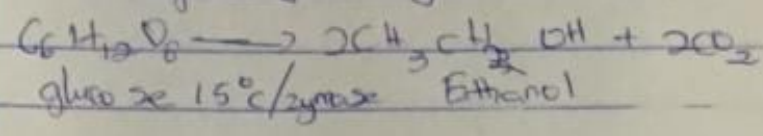 C6H12O6 → 2CH3CH2 OH + 2CO2
glucose 15°c/zymase Ethanol